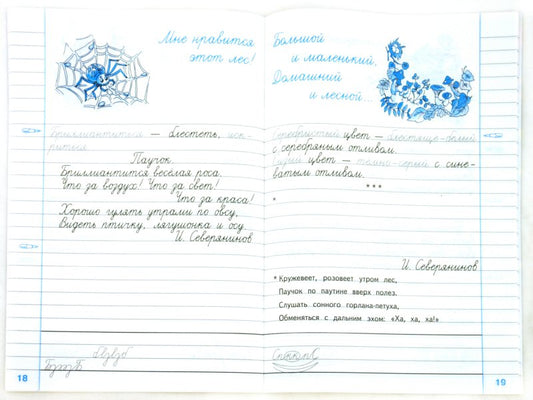 Мне нравится
этот лес!
Бриллиантиться — блестеть, иск-
риться
Паучок.
Бриллиантится весёлая роса.
Что за воздух! Что за свет!
Что за краса!
Хорошо гулять утрами по овсу,
Видеть птичку, лягушонка и осу.
И. Северянинов
18
Большой
и маленький.
Домашний
и лесной...
Серебристый цвет — блестяще-белый
с серебряным отливом.
Сизый цвет — тёмно-серый с сине-
ватым отливом.
***
*
И. Северянинов
* Кружевеет, розовеет утром лес,
Паучок по паутине вверх полез.
Слушать сонного горлана-петуха,
Обменяться с дальним эхом: «Ха, ха, ха!»
19